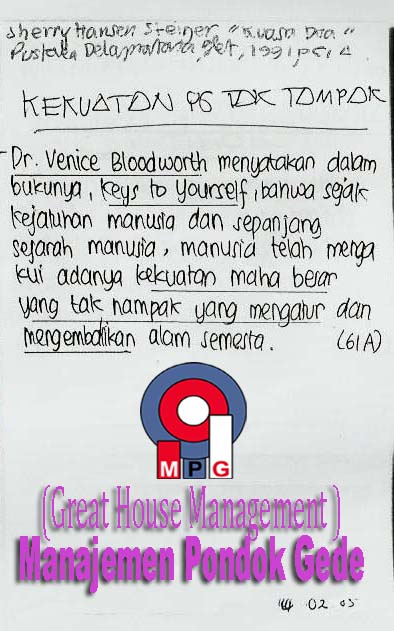 Sherry Hansen Steiger "Kuasa Doa"
Pustaka Delapratasa, Jkt, 1991, pc, 4
KEKUATAN YG TAK TAMPAK
Dr. Venice Bloodworth menyatakan dalam
bukunya, Keys to Yourself, bahwa sejak
kejatuhan manusia dan sepanjang
sejarah manusia, manusia telah menga
kui adanya kekuatan maha besar
yang tak nampak yang mengatur dan
mengembalikan alam semesta. (61A)
MPG
(Great House Management)
Manajemen Pondok Gede
02 05